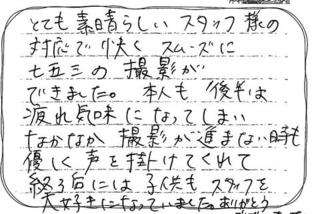 とても素晴らしいスタッフ様の
対応で快くスムーズに
七五三の撮影が
できました。本人も後半は
疲れ気味になってしまい
なかなか撮影が進まない時も
優しく声を掛けてくれて
終了后には子供もスタッフを
大好きになっていました。ありがとう